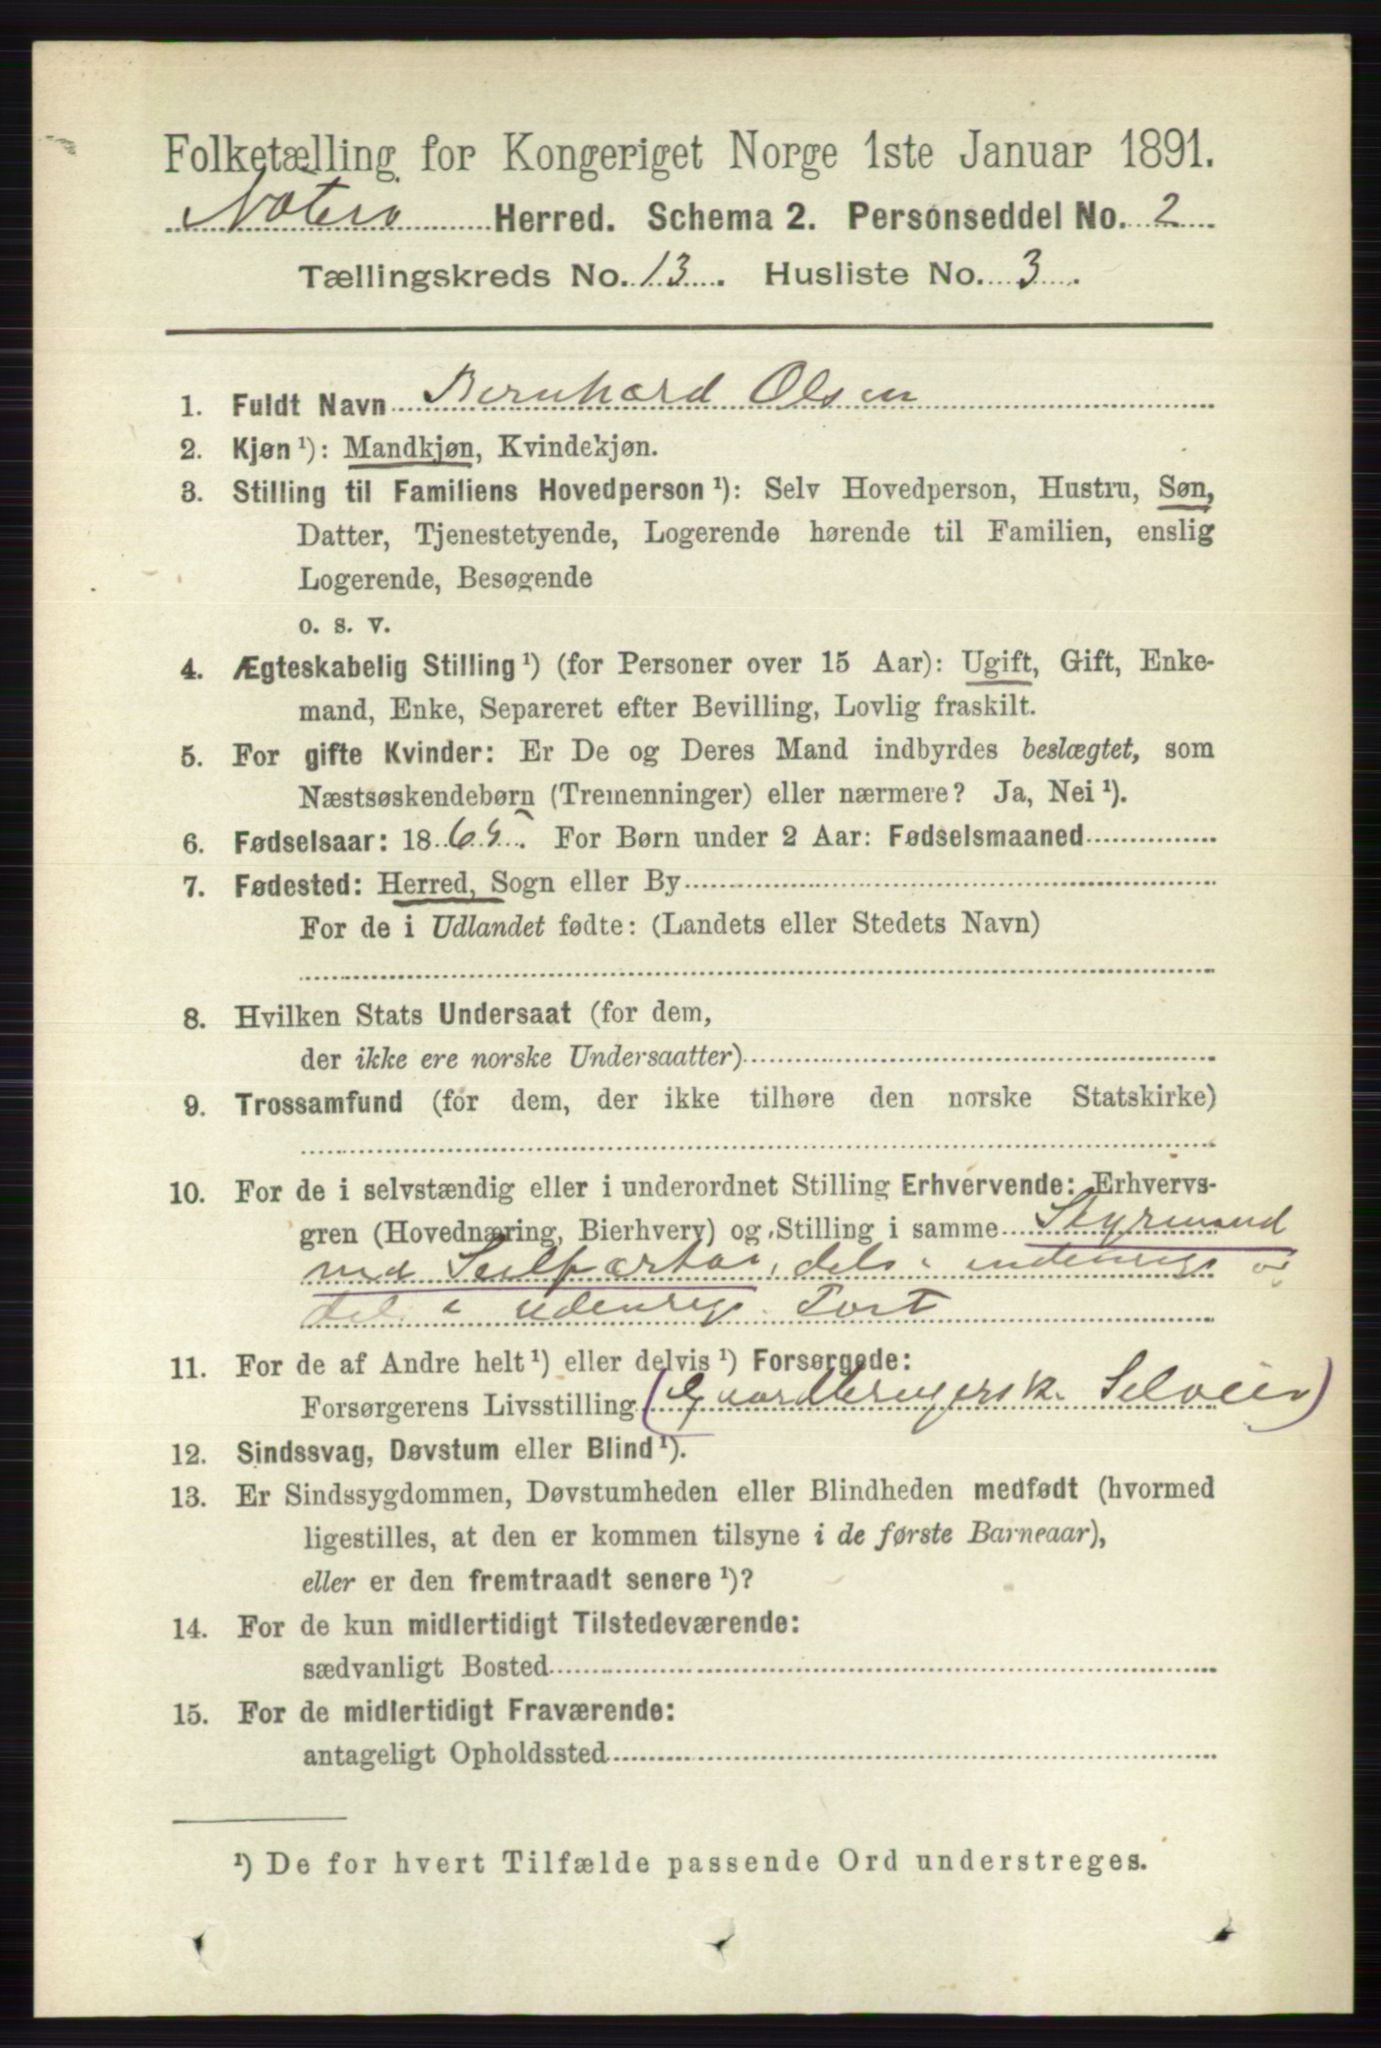 Folketælling for Kongeriget Norge 1ste Januar 1891.
Nøterø Herred. Schema 2. Personseddel No. 2
Tællingskreds No. 13. Husliste No. 3.
1. Fuldt Navn Bernhard Olsen
2. Kjøn¹): Mandkjøn, Kvindekjøn.
3. Stilling til Familiens Hovedperson¹): Selv Hovedperson, Hustru, Søn,
Datter, Tjenestetyende, Logerende hørende til Familien, enslig
Logerende, Besøgende
o. s. v.
4. Ægteskabelig Stilling¹) (for Personer over 15 Aar): Ugift, Gift, Enke-
mand, Enke, Separeret efter Bevilling, Lovlig fraskilt.
5. For gifte Kvinder: Er De og Deres Mand indbyrdes beslægtet, som
Næstsøskendebørn (Tremenninger) eller nærmere? Ja, Nei¹).
6. Fødselsaar: 1865. For Børn under 2 Aar: Fødselsmaaned
7. Fødested: Herred, Sogn eller By
For de i Udlandet fødte: (Landets eller Stedets Navn)
8. Hvilken Stats Undersaat (for dem,
der ikke ere norske Undersaatter)
9. Trossamfund (for dem, der ikke tilhøre den norske Statskirke)
10. For de i selvstændig eller i underordnet Stilling Erhvervende: Erhvervs-
gren (Hovednæring, Bierhverv) og Stilling i samme Styrmand
ved Seilfartøi, dels i indenrigs og
del i udenrigs Fart
11. For de af Andre helt¹) eller delvis¹) Forsørgede:
Forsørgerens Livsstilling (Gaardbrugersk. Selveier)
12. Sindssvag, Døvstum eller Blind¹).
13. Er Sindssygdommen, Døvstumheden eller Blindheden medfødt (hvormed
ligestilles, at den er kommen tilsyne i de første Barneaar),
eller er den fremtraadt senere¹)?
14. For de kun midlertidigt Tilstedeværende:
sædvanligt Bosted
15. For de midlertidigt Fraværende:
antageligt Opholdssted
¹) De for hvert Tilfælde passende Ord understreges.